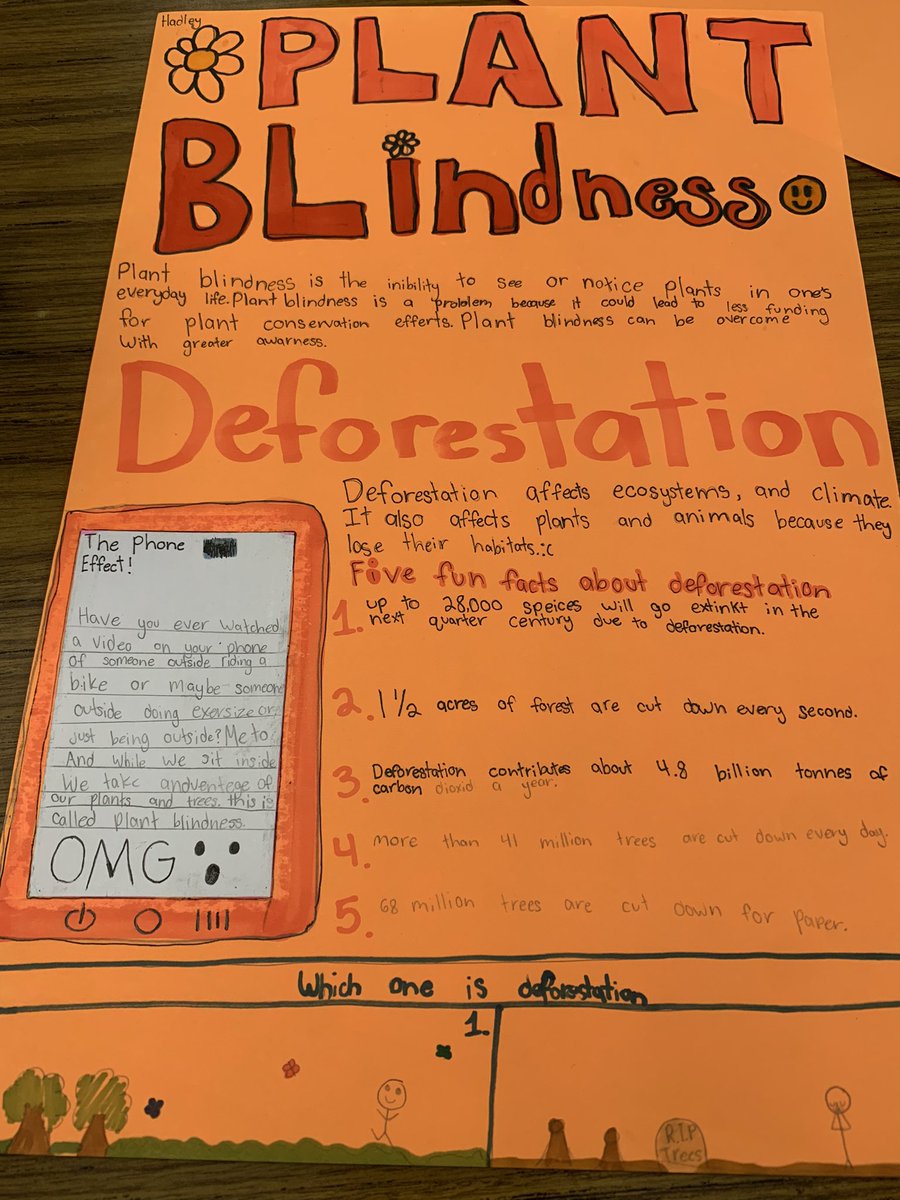 Hadley
PLANT
BLindness
Plant blindness is the inibility to see or notice plants in one's
everyday life. Plant blindness is a problem because it could lead to less funding
for plant conservation efferts. Plant blindness can be overcome
with greater awarness.
Deforestation
Deforestation affects ecosystems, and climate.
It also affects plants and animals because they
lose their habitats.:c
Five fun facts about deforestation
1. up to 28,000 speices will go extinkt in the
next quarter century due to deforestation.
2. 1 1/2 acres of forest are cut down every second.
3. Deforestation contribates about 4.8 billion tonnes of
carbon dioxid a year.
4. more than 41 million trees are cut down every day.
5. 68 million trees are cut down for paper.
The Phone
Effect!
Have you ever watched
a video on your phone
of someone outside riding a
bike or maybe someone
outside doing exersize or
just being outside? Me to
And while we sit inside
We take andventege of
our plants and trees. this is
called plant blindness.
OMG
Which one is deforestation
1.
R.I.P
Trees